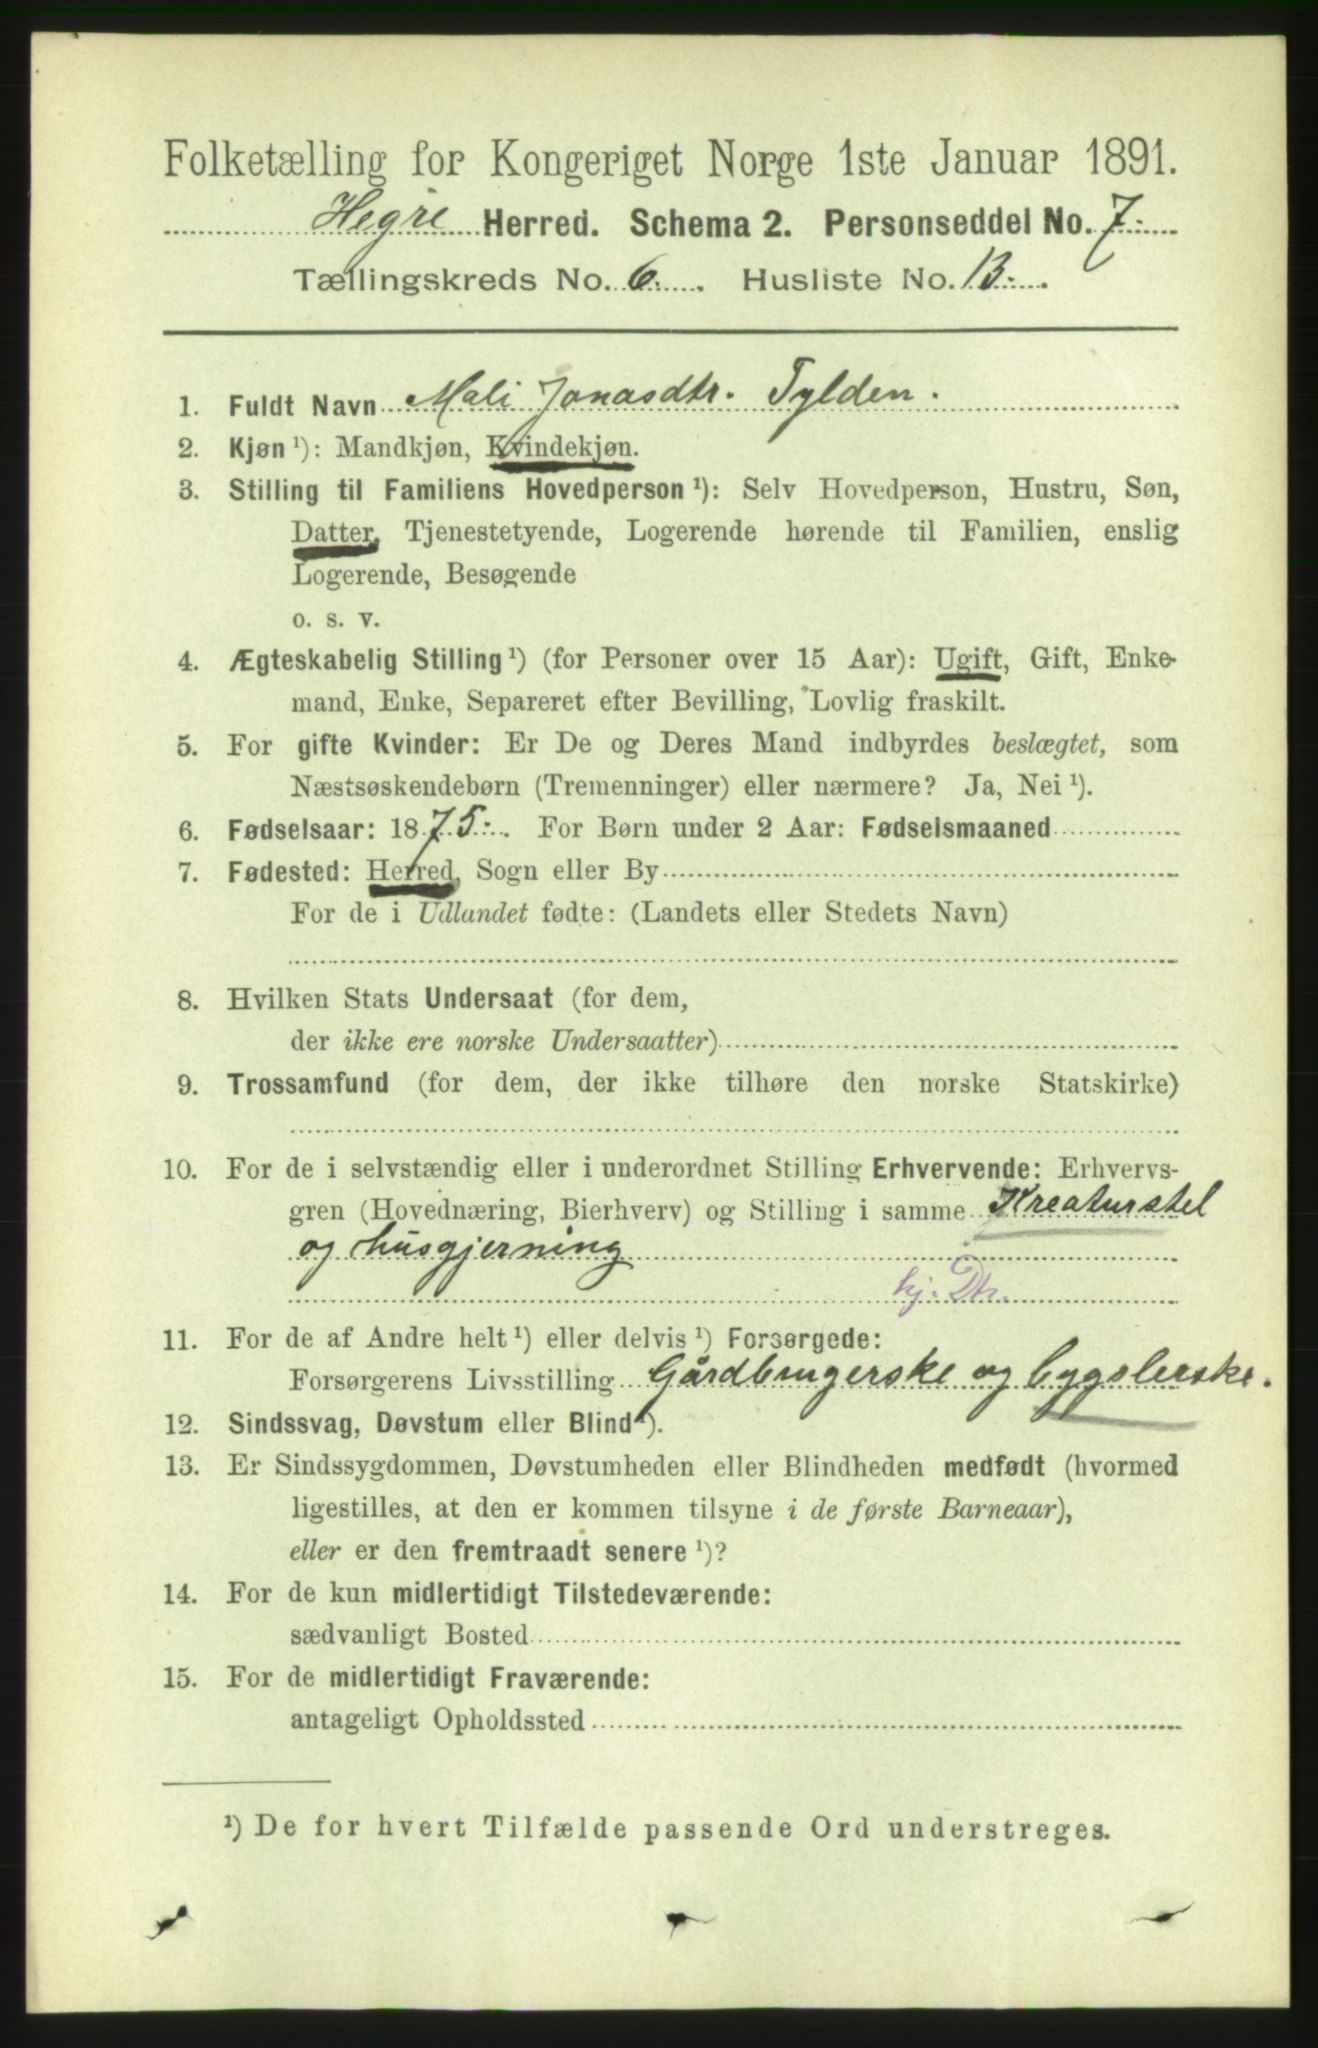 Folketælling for Kongeriget Norge 1ste Januar 1891.
Hegre Herred. Schema 2. Personseddel No. 7.
Tællingskreds No. 6. Husliste No. 13.
1. Fuldt Navn Mali Jonasdtr. Tylden.
2. Kjøn ¹): Mandkjøn, Kvindekjøn.
3. Stilling til Familiens Hovedperson ¹): Selv Hovedperson, Hustru, Søn,
Datter, Tjenestetyende, Logerende hørende til Familien, enslig
Logerende, Besøgende
o. s. v.
4. Ægteskabelig Stilling ¹) (for Personer over 15 Aar): Ugift, Gift, Enke-
mand, Enke, Separeret efter Bevilling, Lovlig fraskilt.
5. For gifte Kvinder: Er De og Deres Mand indbyrdes beslægtet, som
Næstsøskendebørn (Tremenninger) eller nærmere? Ja, Nei ¹).
6. Fødselsaar: 1875. For Børn under 2 Aar: Fødselsmaaned
7. Fødested: Herred, Sogn eller By
For de i Udlandet fødte: (Landets eller Stedets Navn)
8. Hvilken Stats Undersaat (for dem,
der ikke ere norske Undersaatter)
9. Trossamfund (for dem, der ikke tilhøre den norske Statskirke)
10. For de i selvstændig eller i underordnet Stilling Erhvervende: Erhvervs-
gren (Hovednæring, Bierhverv) og Stilling i samme Kreaturstel
og husgjerning
hj. Dtr.
11. For de af Andre helt ¹) eller delvis ¹) Forsørgede:
Forsørgerens Livsstilling Gårdbrugerske og bygslerske.
12. Sindssvag, Døvstum eller Blind ¹).
13. Er Sindssygdommen, Døvstumheden eller Blindheden medfødt (hvormed
ligestilles, at den er kommen tilsyne i de første Barneaar),
eller er den fremtraadt senere ¹)?
14. For de kun midlertidigt Tilstedeværende:
sædvanligt Bosted
15. For de midlertidigt Fraværende:
antageligt Opholdssted
¹) De for hvert Tilfælde passende Ord understreges.